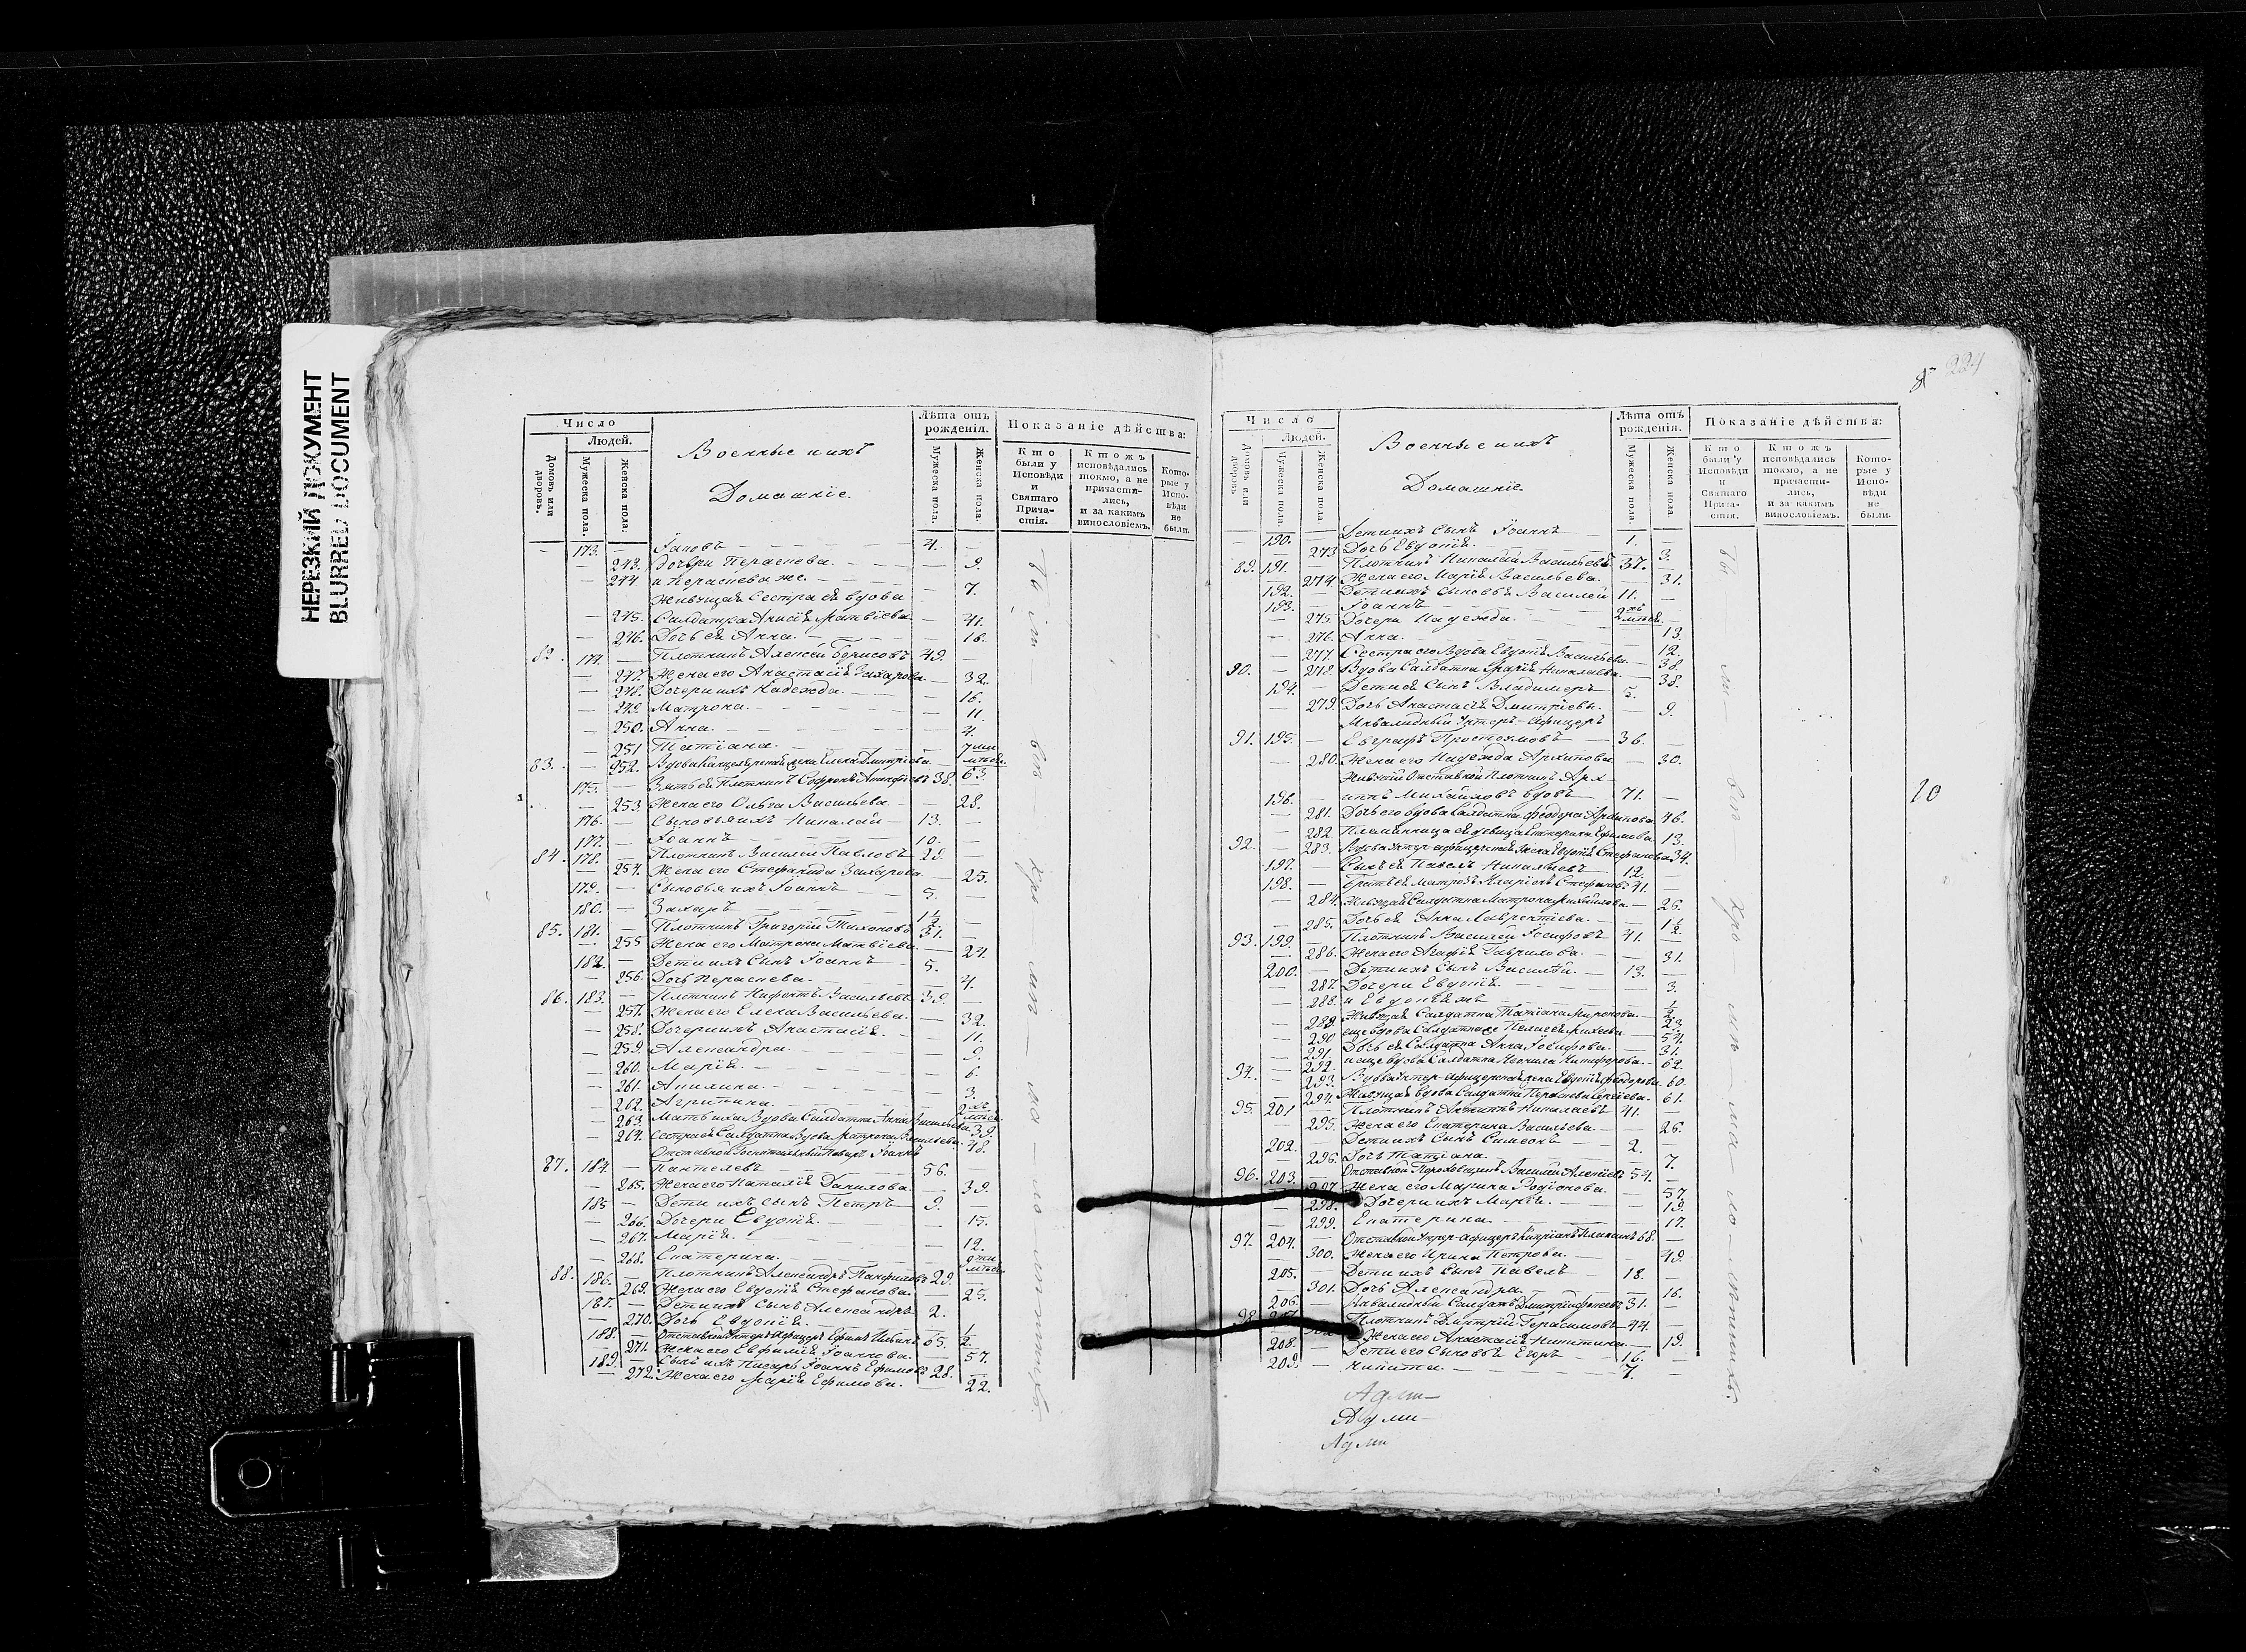 НЕРЕЗКИЙ ДОКУМЕНТ
BLURRED DOCUMENT
Число
Людей.
Домовъ или дворовъ.
Мужеска пола.
Женска пола.
Военные и ихъ
Домашніе.
Лѣта отъ рожденія.
Мужеска пола.
Женска пола.
Показаніе дѣйства:
Кто были у Исповѣди и Святаго Причастія.
Ктожъ исповѣдались токмо, а не причастились, и за какимъ винословіемъ.
Которые у Исповѣди не были.
— 173. — Іаковъ — 4. —
— 243. Дочери Параскева. — 9.
— 244 и Параскева же. — 7.
Живущая Сестра ея вдова
— 245. Салдатка Анисія Матвіева — 41.
— 246. Дочь ея Анна. — 16.
82. 174. — Плотникъ Алексѣй Борисовъ 49. —
— 247. Жена его Анастасія Захарова. — 32.
— 248. Дочери ихъ Надежда. — 16.
— 249. Матрона. — 11.
— 250. Анна. — 4.
— 251 Татіана. — 7ми мѣсе.
83. — 252. Вдова жена Елена Дмитріева. — 63.
175. — Зять ея Плотникъ Софронъ 38. —
— 253. Жена его Ольга Васильева — 28.
176. — Сыновья ихъ Николай 13. —
177. — Іоаннъ 10. —
84. 178. — Плотникъ Василей Павловъ 29. —
— 254. Жена его Стефанида Захарова — 25.
179. — Сыновья ихъ Іоаннъ 5. —
180. — Захаръ 1½ —
85. 181. — Плотникъ Григорій Тихоновъ 31. —
— 255 Жена его Матрона Матвіева — 24.
182. — Дети ихъ Сынъ Іоаннъ 5.
— 256. Дочь Параскева. — 4.
86. 183. — Плотникъ Васильевъ 39. —
— 257. Жена его Елена Васильева. — 32.
— 258. Дочери ихъ Анастасія. — 11.
— 259. Александра. — 9.
— 260. Марія. — 6.
— 261. Акилина. — 3.
— 262. Агрипина. — 2хъ мѣсе.
— 263. Мать ихъ Вдова Салдатка Анна Васильева. 39.
— 264. Сестра ея Салдатка Вдова Матрона Васильева. 48.
Отставной Іоаннъ
87. 184. — Пантелевъ 56. —
— 265. Жена его Наталія Данилова. — 39.
185 — Дети ихъ сынъ Петръ 9. —
— 266. Дочери Евдокія. — 15.
— 267. Марія. — 12.
— 268. Екатерина. — 9ти мѣсе.
88. 186. — Плотникъ Александръ Панфиловъ 29. —
— 269. Жена его Евдокія Стефанова. — 25.
187. — Дети ихъ сынъ Александръ 2.
— 270. Дочь Евдокія. — ½
188. — Отставной Унтеръ-Афицеръ Ефимъ Ильинъ 65.
— 271. Жена его Евфимія Іоаннова. — 57.
189. — Сынъ ихъ Писарь Іоаннъ Ефимовъ 28. —
— 272. Жена его Марія Ефимова. — 22.
221
Число
Людей.
Домовъ или дворовъ.
Мужеска пола.
Женска пола.
Военные и ихъ
Домашніе.
Лѣта отъ рожденія.
Мужеска пола.
Женска пола.
Показаніе дѣйства:
Кто были у Исповѣди и Святаго Причастія.
Ктожъ исповѣдались токмо, а не причастились, и за какимъ винословіемъ.
Которые у Исповѣди не были.
— 190. — Дети ихъ Сынъ Іоаннъ 1. —
— 273 Дочь Евдокія. — 3.
89. 191. — Плотникъ Николай Васильевъ 37. —
— 274. Жена его Марія Васильева. — 31.
192. — Дети ихъ Сыновья Василей 11. —
193. — Іоаннъ 2хъ мѣсе. —
— 275. Дочери Надежда. — 13.
— 276. Анна. — 12.
— 277. Сестра его Вдова Евдокія Васильева. — 38.
90. — 278. Вдова Салдатка Марія Николаева. — 38.
194. — Дети ея Сынъ Владимеръ 5. —
— 279. Дочь Анастасія Дмитріева. — 9.
Инвалидный Унтеръ-Афицеръ
91. 195. — Евграфъ 36. —
— 280. Жена его Надежда Архипова — 30.
Живущій Отставной Плотникъ Арх-
196. — иппъ Михайловъ вдовъ 71. —
— 281. Дочь его вдова Салдатка Феодора Архипова. 46.
— 282. Племянница ея девица Екатерина Ефимова. 13.
92. — 283. Вдова Унтер-афицерская жена Евдокія Стефанова. 34.
197. — Сынъ ея Павелъ Николаевъ 12.
198. — Братъ ея матрозъ Иларіонъ Стефановъ 41. —
— 284. Живущая Салдатка Матрона Михайлова. — 26.
— 285. Дочь ея Анна Лаврентіева. — 1½
93. 199. — Плотникъ Василей Іосифовъ 41. —
— 286. Жена его Агафія Гаврилова. — 31.
200. — Дети ихъ Сынъ Василей. 13. —
— 287. Дочери Евдокія. — 3.
— 288. и Евдокія жъ — ½
— 289. Живущая Салдатка Татіана Миронова. — 23.
— 290 еще вдова Салдатка Пелагея Михеева — 54.
— 291. Дочь ея Салдатка Анна Іосифова. — 31.
— 292. и еще вдова Салдатка Никифорова. — 62.
94. — 293. Вдова Унтер-афицерская жена Евдокія Феодорова. 60.
— 294. Живущая вдова Салдатка Параскева Сергіева. 61.
95. 201 — Плотникъ Николаевъ 41. —
— 295. Жена его Екатерина Васильева. — 26.
202. — Дети ихъ Сынъ Симеонъ 2.
— 296. Дочь Татіана. — 7.
96. 203. — Отставной Василей Алексіевъ 54. —
— 297 Жена его Марина Родіонова. — 57
— 298. Дочери ихъ Марія. — 19.
— 299. Екатерина. — 17.
97. 204. — Отставной Унтер-афицеръ 68. —
— 300. Жена его Ирина Петрова. — 49.
205. — Дети ихъ Сынъ Павелъ 18. —
— 301. Дочь Александра. — 16.
206. — Инвалидный Салдатъ Дмитрій 31. —
98. 207 — Плотникъ Дмитрій Герасимовъ 44. —
Жена его Анастасія Никитина. — 19.
208. — Дети его Сыновья Егоръ 16. —
209. — Никита. 7. —
20
Адми-
Адми-
Адми